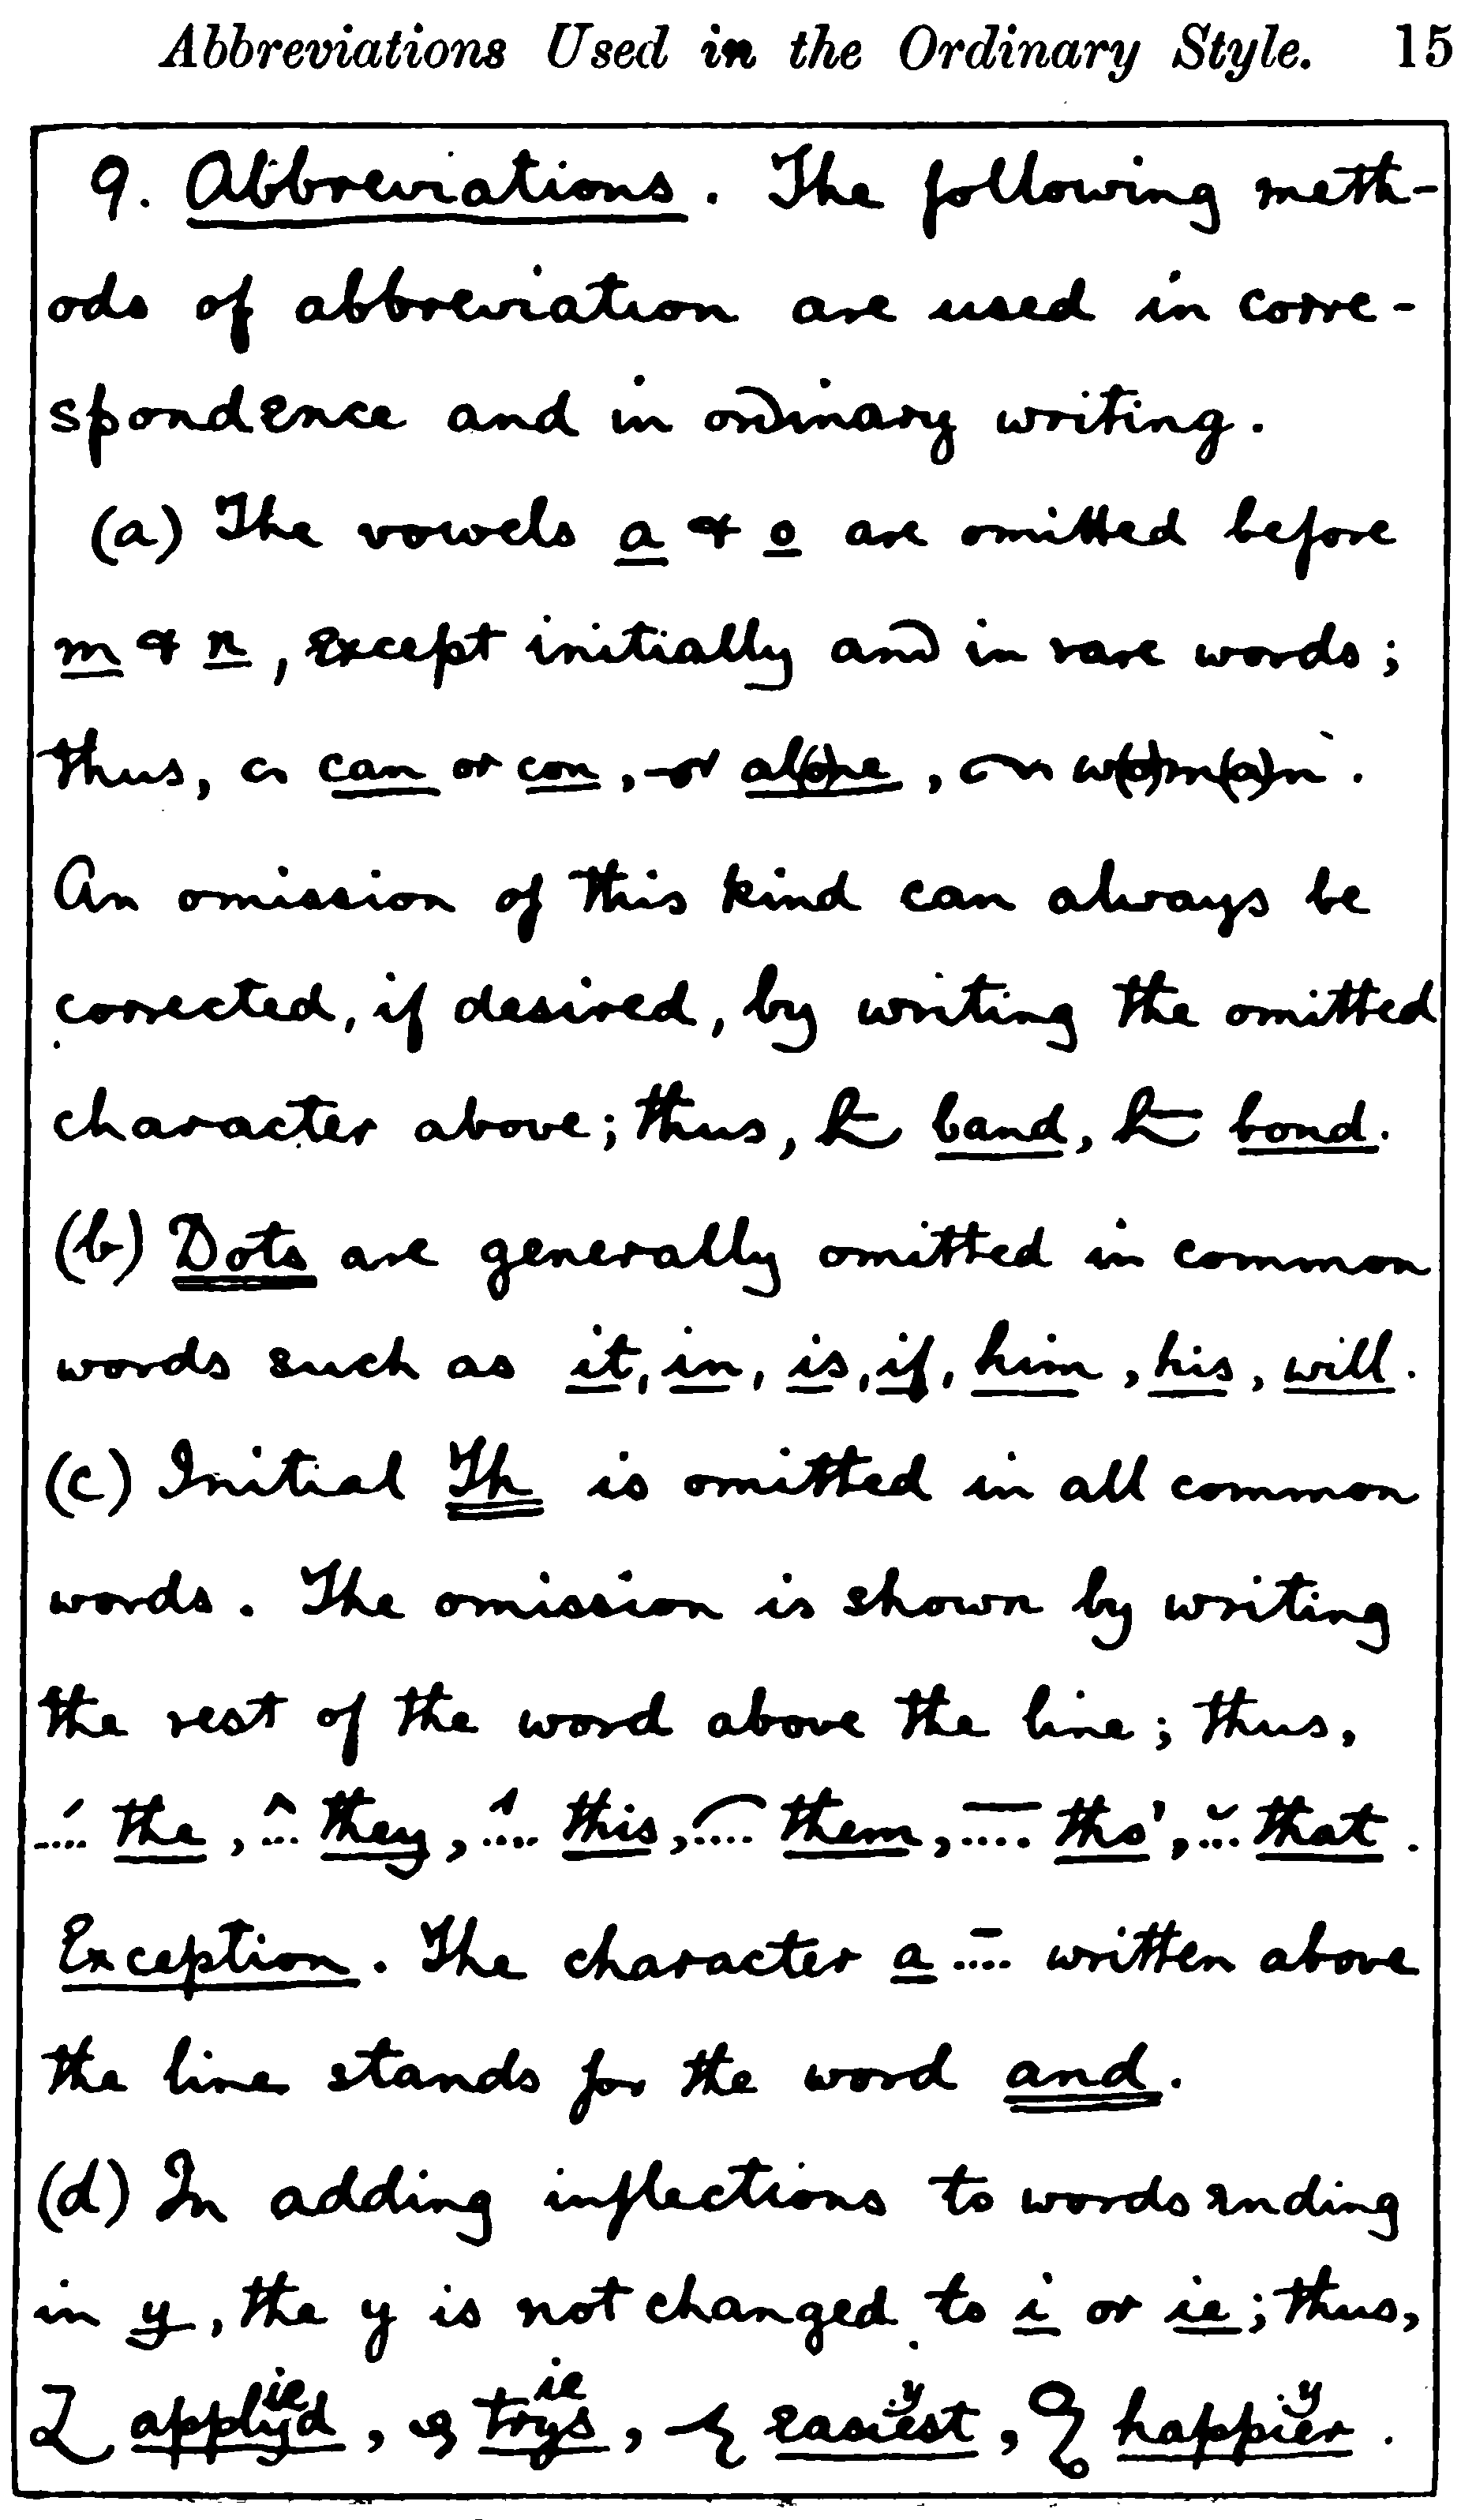 Abbreviations Used in the Ordinary Style. 15
9. Abbreviations. The following meth-
ods of abbreviation are used in corre-
spondence and in ordinary writing.
(a) The vowels a & o are omitted before
m & n, except initially and in rare words;
thus, can or con, al(o)ne, w(o)m(a)n.
An omission of this kind can always be
corrected, if desired, by writing the omitted
character above; thus, band, bond.
(b) Dots are generally omitted in common
words such as it, in, is, if, him, his, will.
(c) Initial Th is omitted in all common
words. The omission is shown by writing
the rest of the word above the line; thus,
the, they, this, them, tho', that.
Exception. The character a written above
the line stands for the word and.
(d) In adding inflections to words ending
in y, the y is not changed to i or ie; thus,
applyd, trys, easiest, happier.